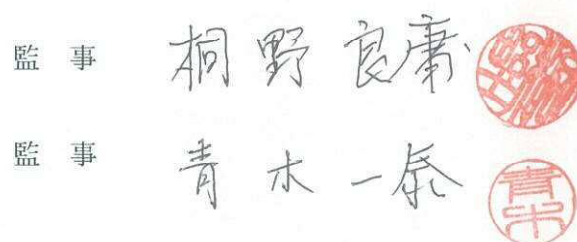 監事 桐野良庸
監事 青木一泰
青木